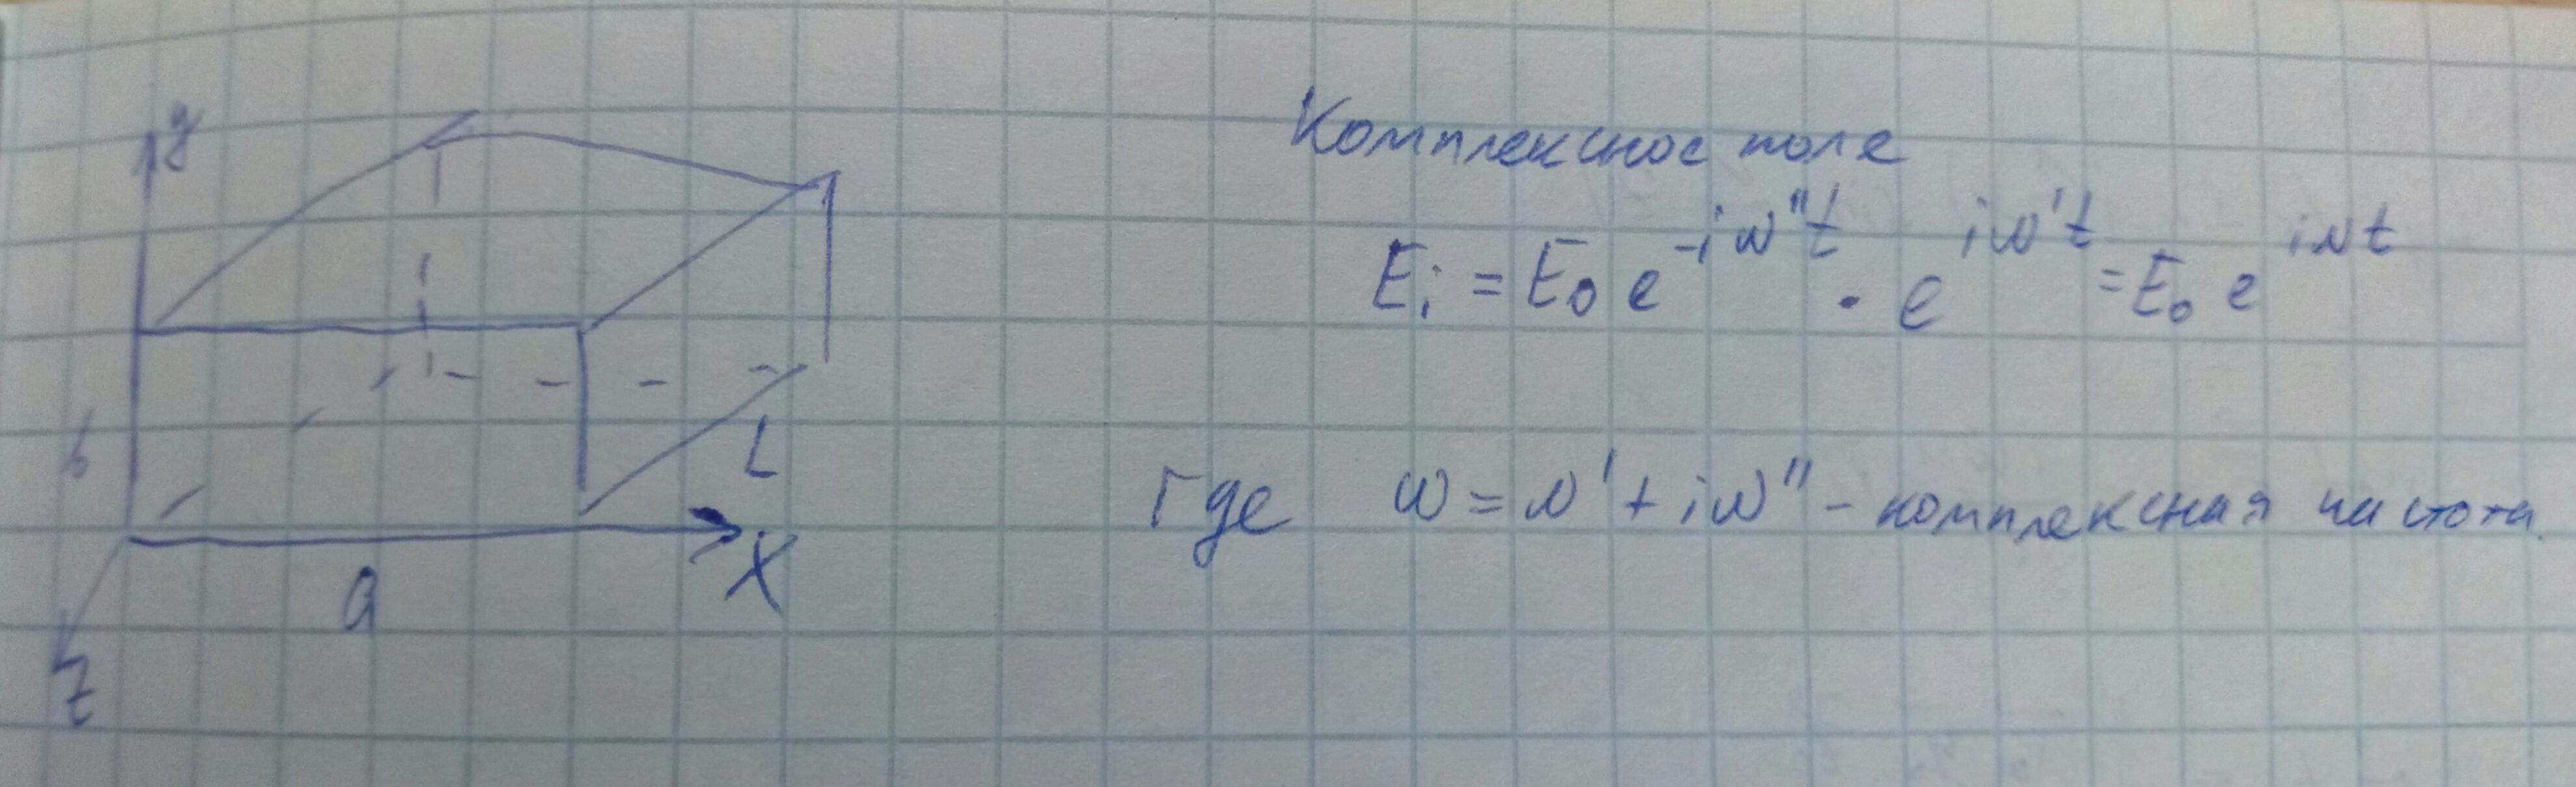 y
b
a
L
X
z
Комплексное поле
E_i = E_0 e^{-iω''t} · e^{iω't} = E_0 e^{iωt}
Где ω = ω' + iω'' - комплексная частота.